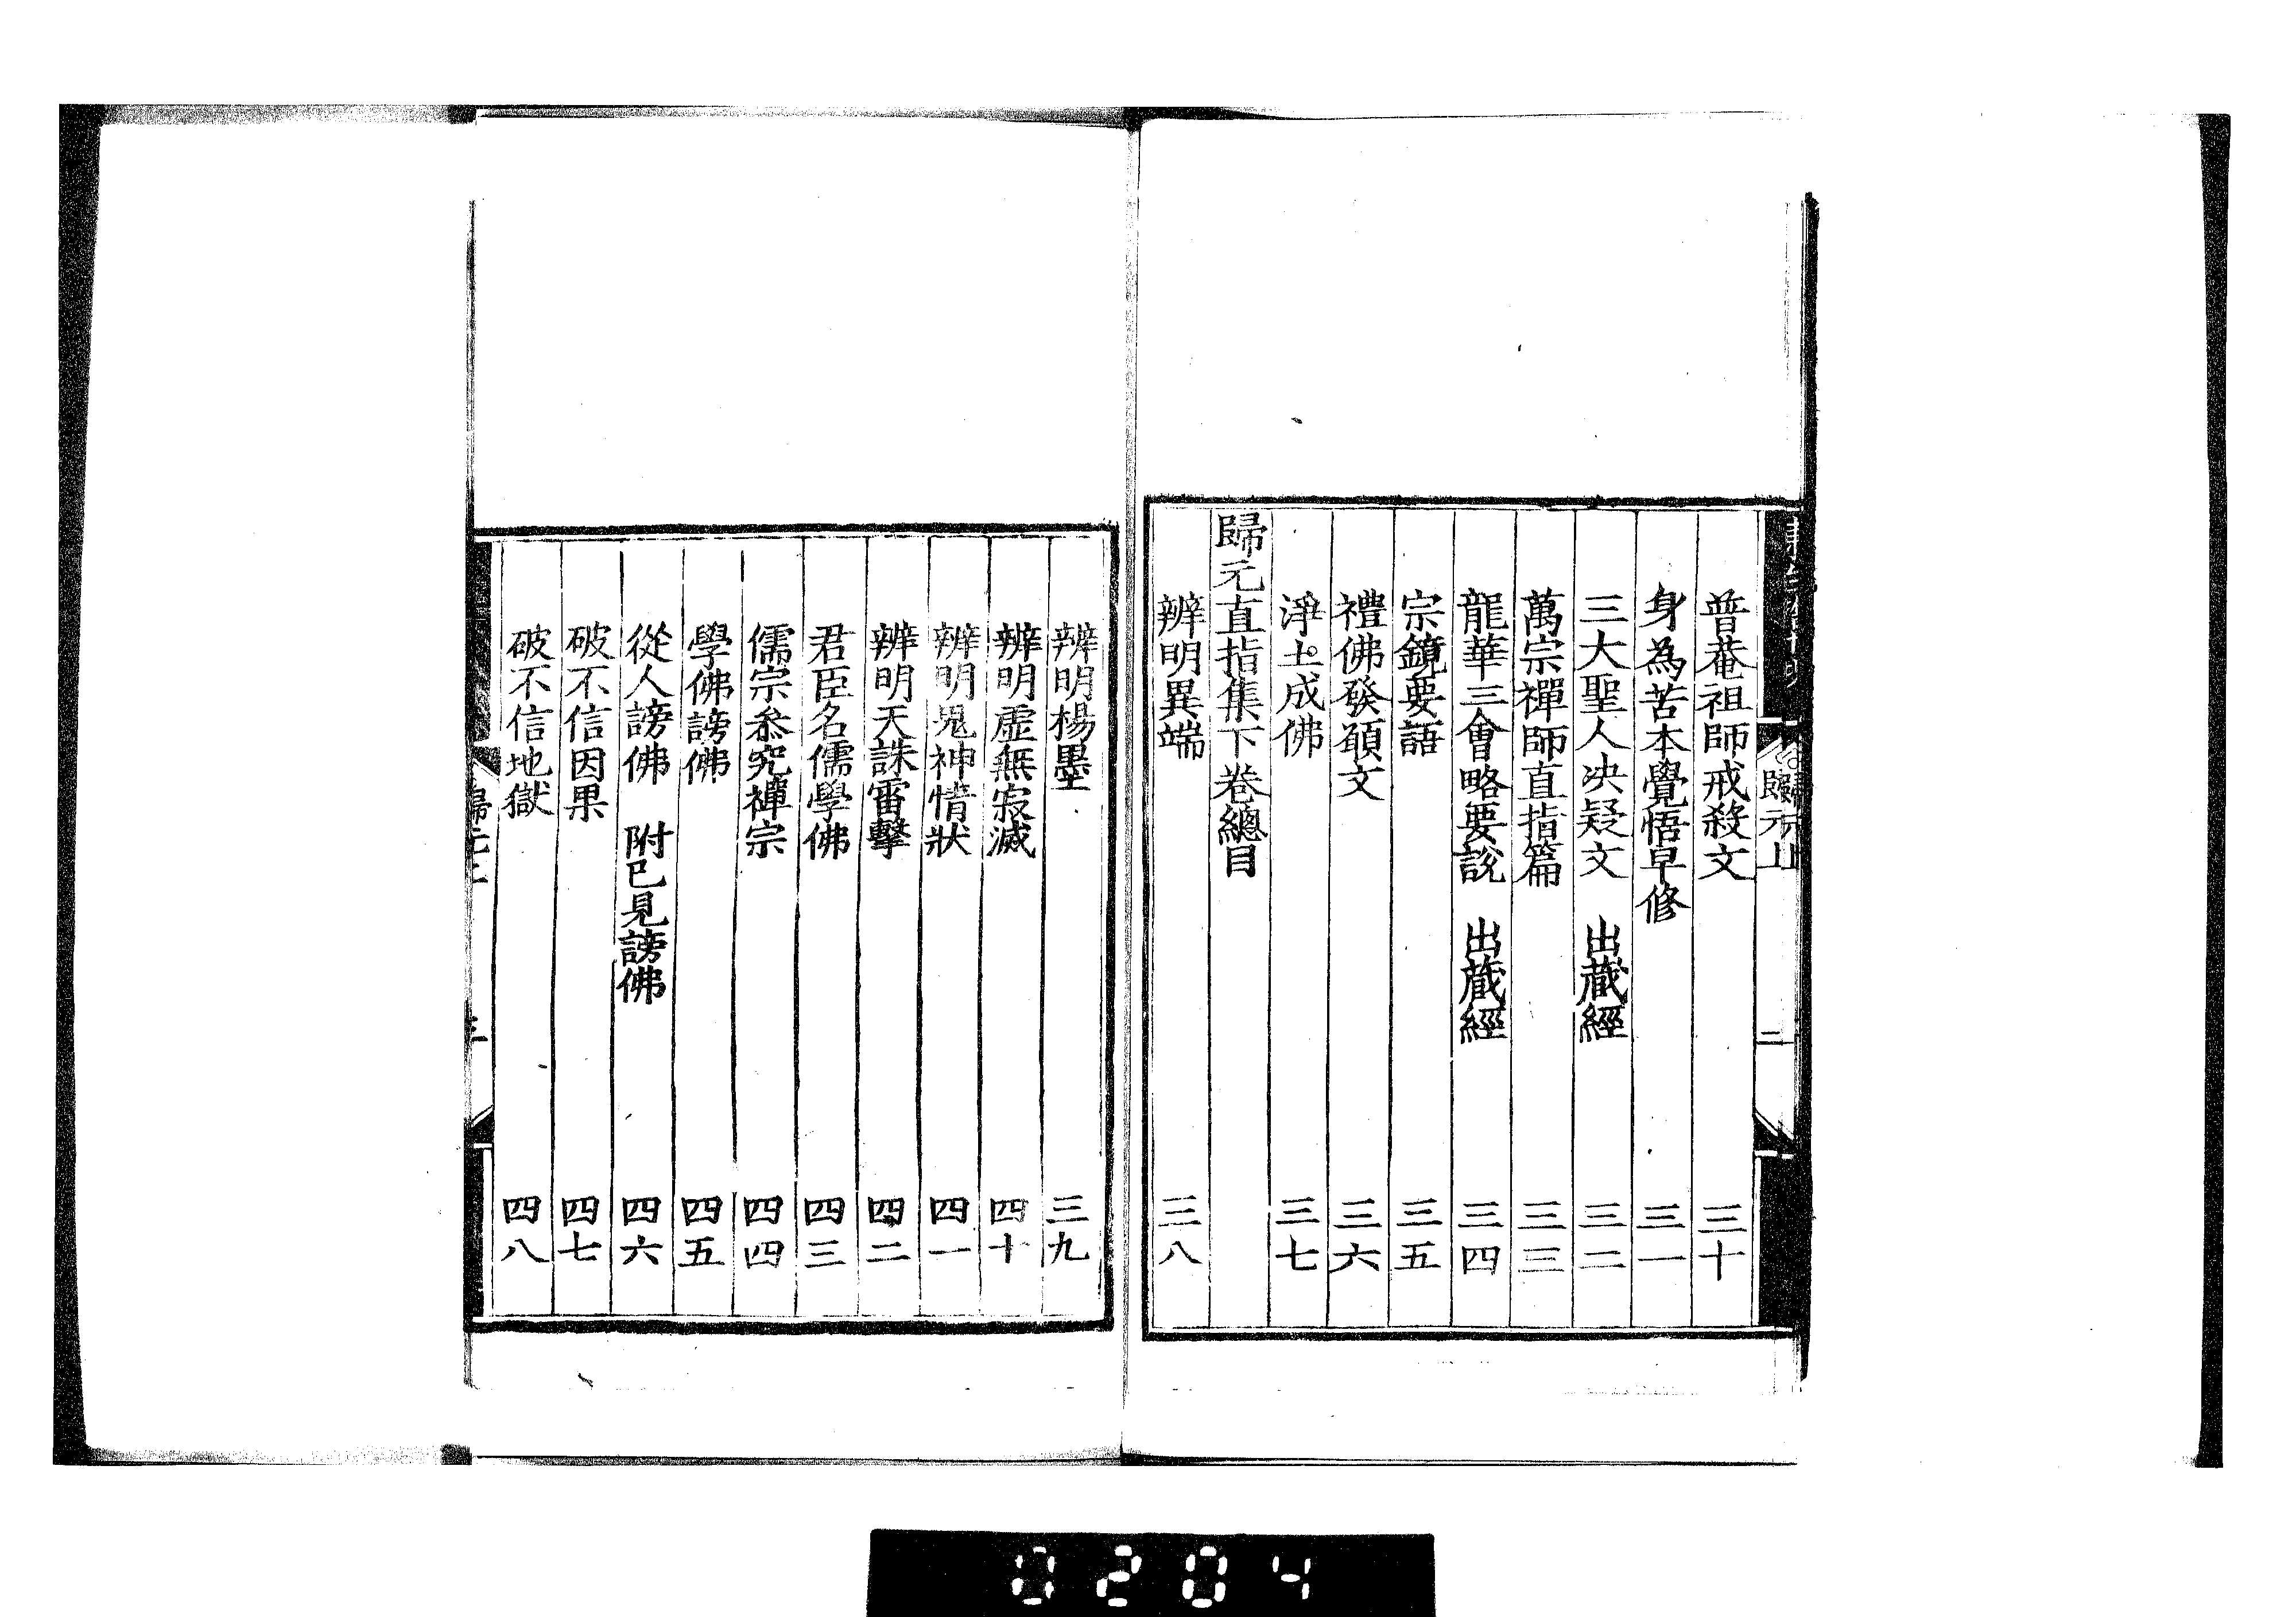 普菴祖師戒殺文 三十
身為苦本覺悟早修 三一
三大聖人决疑文 出藏經 三二
萬宗禪師直指篇 三三
龍華三會略要說 出藏經 三四
宗鏡要語 三五
禮佛發願文 三六
淨土成佛 三七
歸元直指集下卷總目
辨明異端 三八
辨明楊墨 三九
辨明虛無寂滅 四十
辨明鬼神情狀 四一
辨明天誅雷擊 四二
君臣名儒學佛 四三
儒宗叅究禪宗 四四
學佛謗佛 四五
從人謗佛 附已見謗佛 四六
破不信因果 四七
破不信地獄 四八
0204